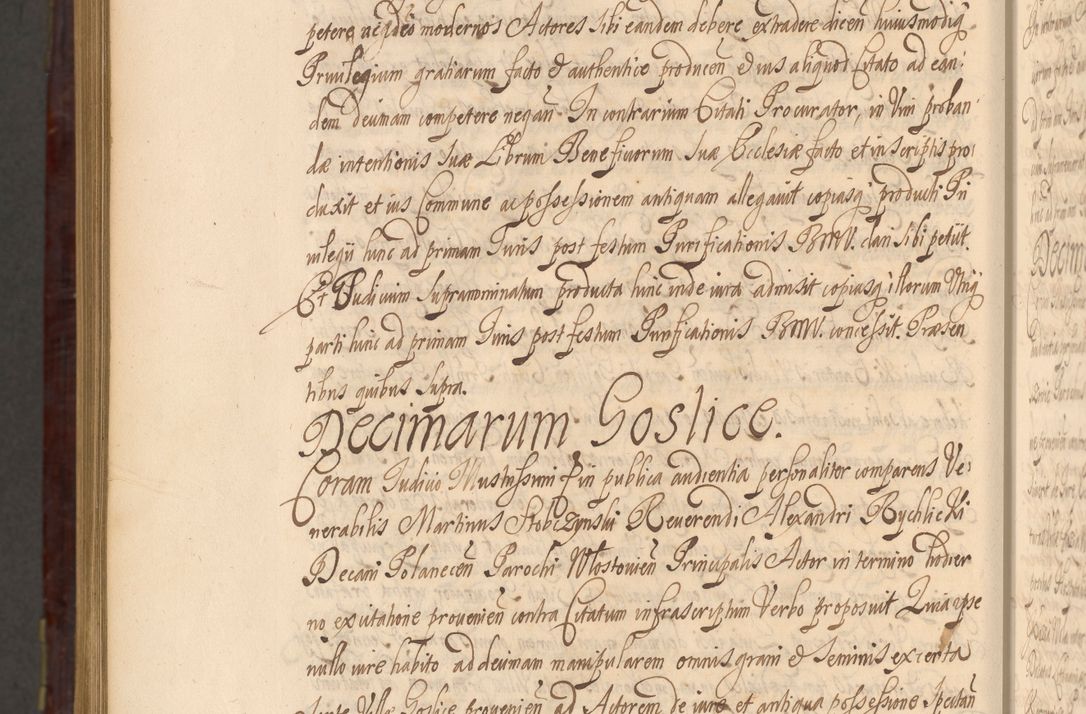 petere ac ideo modernos Actores sibi eandem debere extradere dicen̄ huiusmodiq̨
Privilegium gratiarum facto et authentice producen̄ et ius aliquod Citato ad ean:
dem decimam competere negan̄. In contrarium Citati Procurator, in Vim proban:
dæ intentionis suæ Librum Beneficiorum suæ Ecclesiæ facto et in scriptis pro:
duxit et ius Commune ac possessionem antiquam allegavit copiasq̨ producti Pri
vilegii hinc ad primam Iuris post festum Purificationis BMV. dari sibi petiit.
Et Iudicium supranominatum producta hinc inde iura admisit copiasq̨ illorum Utriq̨
parti hinc ad primam Iuris post festum Purificationis BMV. concessit. Præsen
tibus quibus supra.
Decimarum Goslice.
Coram Iudicio Illustrissimi in publica audientia personaliter comparens Ve:
nerabilis Martinus Stobczynski Reverendi Alexandri Rychlicki
Decani Polanecen̄ Parochi Mostovien̄ Principalis Actor in termino hodier
no ex citatione provenien̄ contra Citatum infrascriptum Verbo proposuit Quia ipse
nullo iure habito ad decimam manipularem omnis grani et seminis ex certa
parte Villæ Goslice provenien̄ ad Actorem de iure et antiqua possessione spectan̄